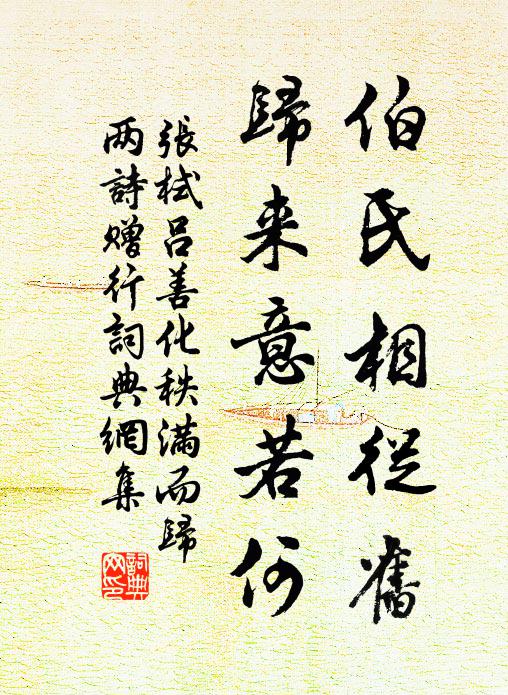 伯氏相從舊
歸来意若何
張栻吕善化秩满而歸
两詩贈行詞典網集
詞典
网印